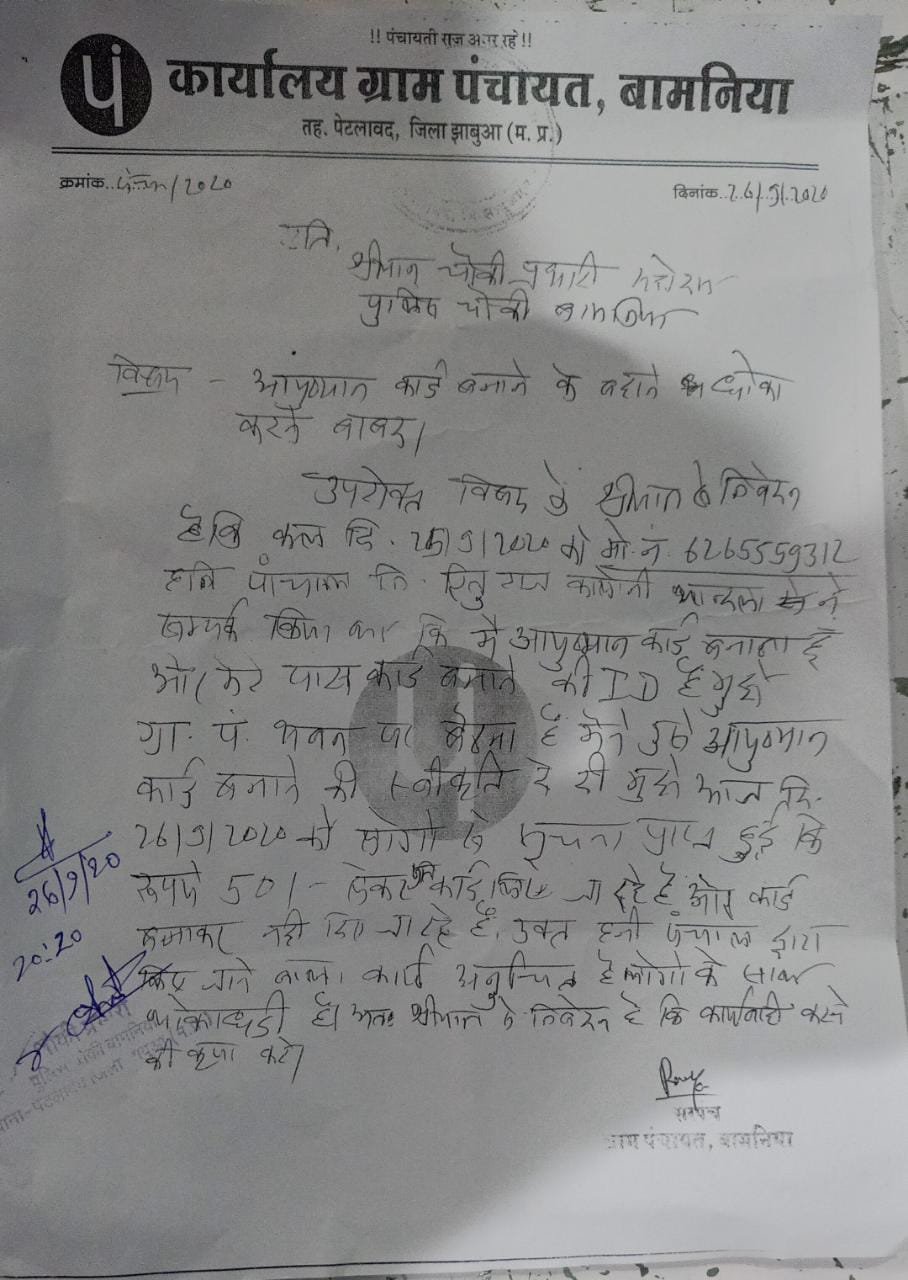 !! पंचायती राज अमर रहे !!
पं कार्यालय ग्राम पंचायत, बामनिया
तह. पेटलावद, जिला झाबुआ (म. प्र.)
क्रमांक. /2020
दिनांक. 26/9/2020
प्रति,
श्रीमान चौकी प्रभारी महोदय
पुलिस चौकी बामनिया
विषय - आयुष्मान कार्ड बनाने के बहाने धोका
करने बाबद।
उपरोक्त विषय में श्रीमान से निवेदन
है कि कल दि. 25/9/2020 को मो. नं. 6265559312
हनि पंचाल नि. रितुराज कालोनी ने
सम्पर्क किया था कि मै आयुष्मान कार्ड बनाता हूँ
और मेरे पास कार्ड बनाने की ID है मुझे
ग्रा. पं. भवन पर बैठना है मैने उसे आयुष्मान
कार्ड बनाने की स्वीकृति दे दी मुझे आज दि.
26/9/2020 को लोगो से सूचना प्राप्त हुई कि
रूपये 50/- लेकर कार्ड जा रहे है और कार्ड
बनाकर नही दिए जा रहे है, उक्त हनी पंचाल द्वारा
किए जाने वाला कार्य अनुचित है लोगो के साथ
धोकाधडी है। अतः श्रीमान से निवेदन है कि कार्यवाही करने
की कृपा करे।
26/9/20
20:20
पुलिस चौकी बामनिया
सरपंच
ग्राम पंचायत, बामनिया